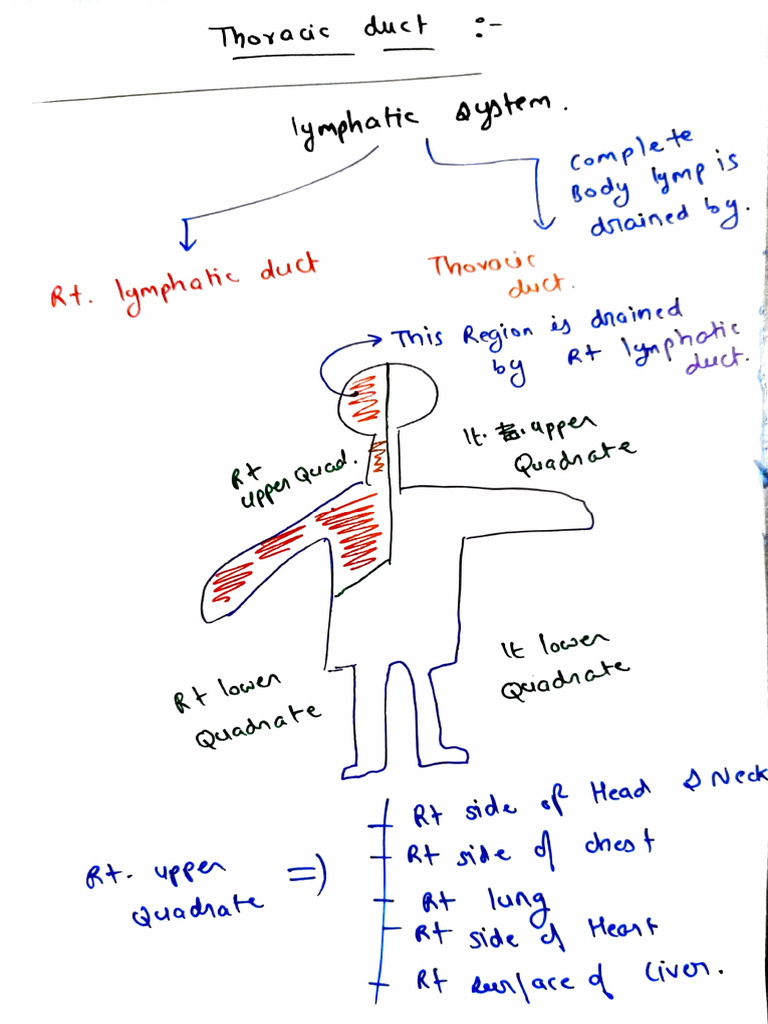 Thoracic duct :-
lymphatic system.
Complete
Body lymp is
drained by.
Rt. lymphatic duct
Thoracic
duct.
This Region is drained
by Rt lymphatic
duct.
lt. upper
Quadrate
Rt
upper Quad.
lt lower
Quadrate
Rt lower
Quadrate
Rt. upper
Quadrate =>
Rt side of Head & Neck
Rt side of chest
Rt lung
Rt side of Heart
Rt surface of Liver.